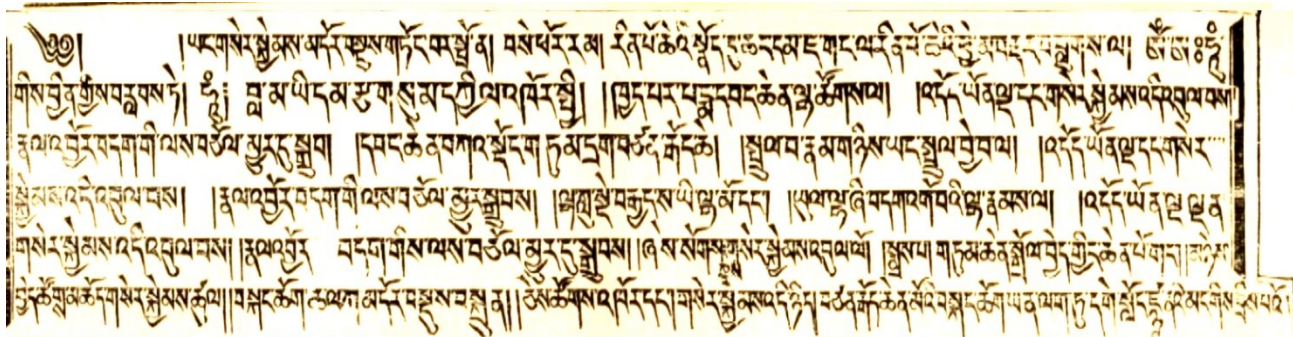 ༄༅། །ཡང་གསེར་སྐྱེམས་མདོར་བསྡུས་གཏོང་བར་སྤྲོ་ན། བསེ་ཕོར་རམ། རིན་པོ་ཆེའི་སྣོད་དུ་ཆང་དམ་ཇ་གང་ལ་རིན་པོ་ཆེའི་ཕྱེ་མ་ཁ་ཟད་བླུགས་ལ། ཨོཾ་ཨཱཿཧཱུྃ
གིས་བྱིན་གྱིས་བརླབས་ཏེ། ཧཱུྃ༔ བླ་མ་ཡི་དམ་རྩ་གསུམ་དཀྱིལ་འཁོར་སྤྱི། །ཁྱད་པར་པདྨ་དབང་ཆེན་ལྷ་ཚོགས་ལ། །འདོད་ཡོན་ལྔ་དང་གསེར་སྐྱེམས་འདི་འབུལ་བས།
རྣལ་འབྱོར་བདག་གི་ལས་བཅོལ་མྱུར་དུ་སྒྲུབ། །དབང་ཆེན་བཀའ་སྡོད་ག ཏུམ་དྲག་བཙན་རྒོད་ཆེ། །སྤྲུལ་བ་རྣམ་གཉིས་ཡང་སྤྲུལ་བྱེ་བ་ལ། །འདོད་ཡོན་ལྔ་དང་གསེར་
སྐྱེམས་འདི་འབུལ་བས། །རྣལ་འབྱོར་བདག་གི་ལས་བཅོལ་མྱུར་སྒྲུབས། །ལྷ་ཀླུ་སྡེ་བརྒྱད་ས་ཡི་ལྷ་མོ་དང་། །ཡུལ་ལྷ་ཞི་བདག་འགོ་བའི་ལྷ་རྣམས་ལ། །འདོད་ཡོན་ལྔ་ལྡན
གསེར་སྐྱེམས་འདི་འབུལ་བས། །རྣལ་འབྱོར བདག་གིས་ལས་བཅོལ་མྱུར་དུ་སྒྲུབས། །ཞེས་སོགས་གསེར་སྐྱེམས་འབུལ་ལོ། །སྲས་པ་གཏུམ་ཆེན་སྲོལ་བྱེད་ཀྱིང་ཆེན་པོ་གང་། །མཉེས་
བྱེད་ཚོགས་མཆོད་གསེར་སྐྱེམས་ཚུལ། །བསྐང་ཆོག མདོར་བསྡུས་བསྐྲུན། །ཅེས་ཚོགས་འཁོར་དང་། གསེར་སྐྱེམས་འདི་ཉིད། བཙན་རྒོད་ཆེན་མོའི་བསྐང་ཆོག་ཡན་ལག་ཏུ་དགེ་སློང་ མིང་གིས་བྲིས་པའོ།